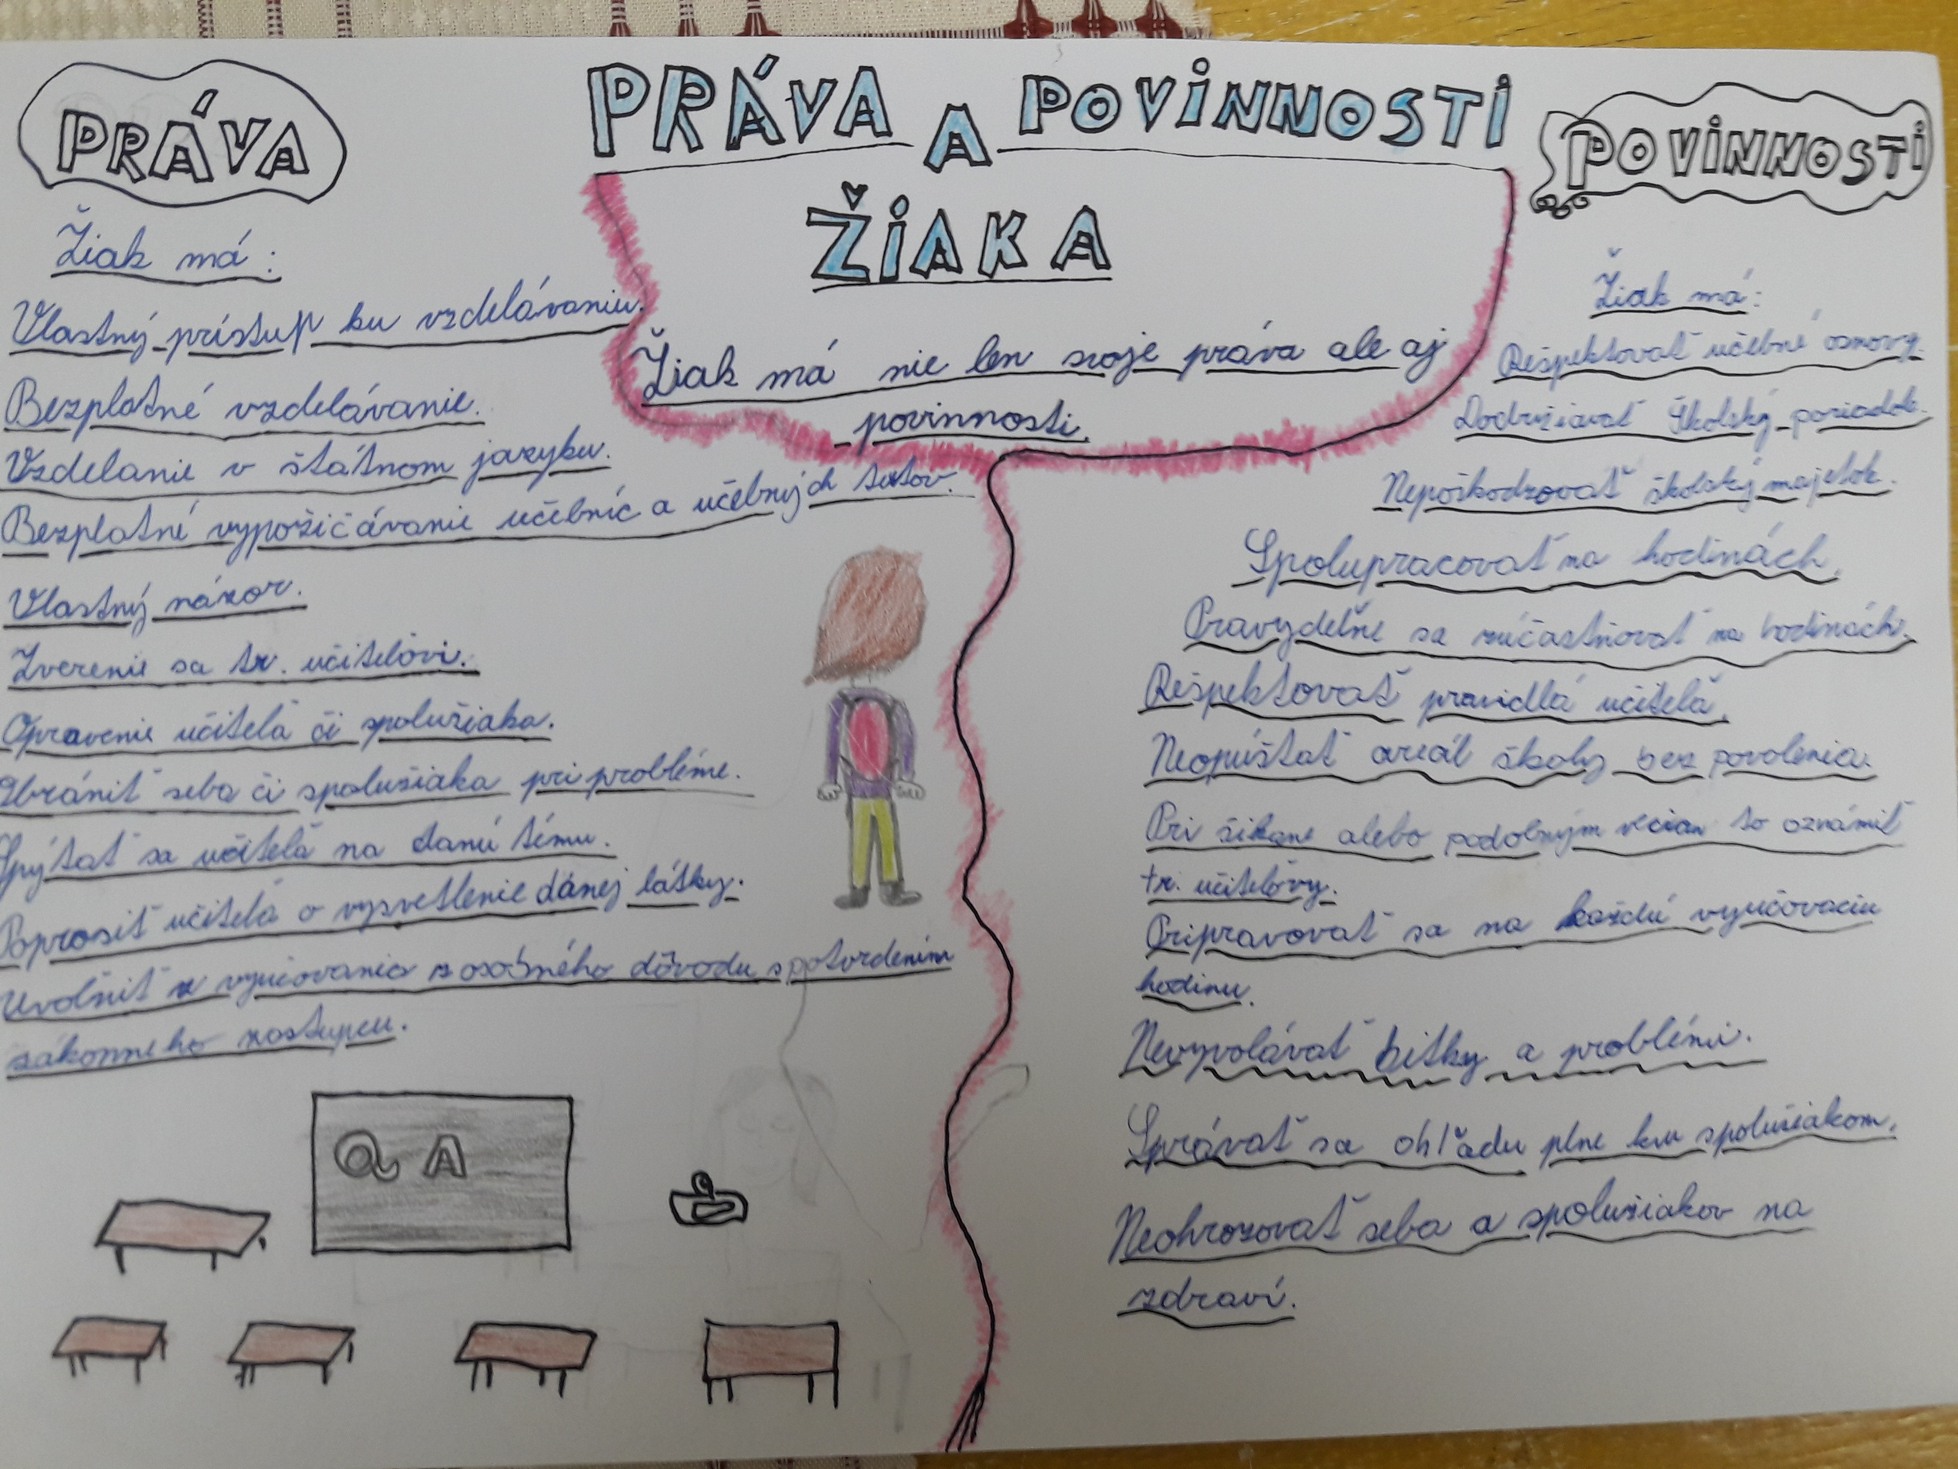 PRÁVA A POVINNOSTI
ŽIAKA
Žiak má nie len svoje práva ale aj
povinnosti.
PRÁVA
Žiak má:
Vlastný prístup ku vzdelávaniu.
Bezplatné vzdelávanie.
Vzdelanie v štátnom jazyku.
Bezplatné vypožičávanie učebníc a učebných textov.
Vlastný názor.
Zverenie sa tr. učitelóvi.
Opravenie učitelá či spolužiaka.
Ubrániť seba či spolužiaka pri probléme.
Spýtať sa učitelá na danú tému.
Poprosiť učitelá o vysvetlenie dánej látky.
Uvolniť z vyučovania z osobného dôvodu s potvrdením
zákonneho zastupcu.
a A
POVINNOSTI
Žiak má:
Rešpektovať učebné osnovy.
Dodržiavať Školský poriadok.
Nepoškodzovať školský majetok.
Spolupracovať na hodinách.
Pravydelne sa zúčastňovať na hodinách.
Rešpektovať pravidlá učitelá.
Neopúštať areál školy bez povolenia.
Pri šikane alebo podobným veciam to oznámiť
tr. učitelóvy.
Pripravovať sa na každú vyučovaciu
hodinu.
Nevyvolávať bitky a problémi.
Správať sa ohľadu plne ku spolužiakom.
Neohrozovať seba a spolužiakov na
zdraví.